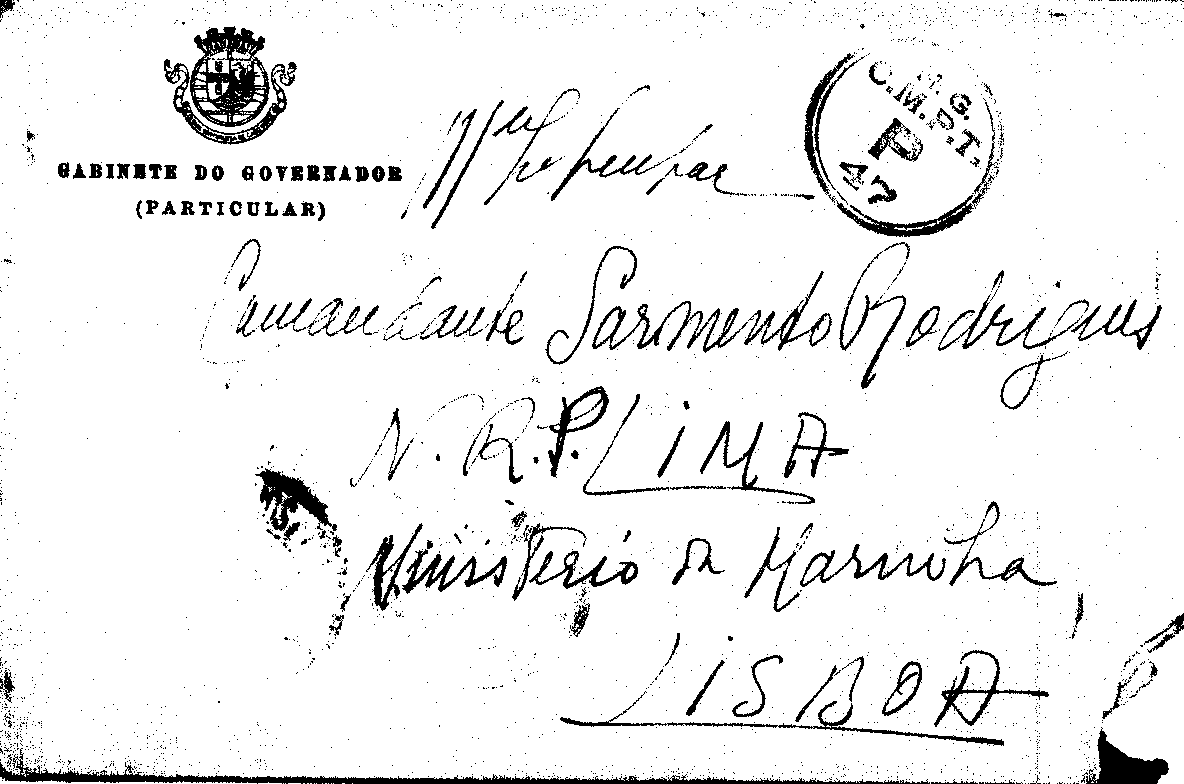 GABINETE DO GOVERNADOR
(PARTICULAR)
M.G.
C.M.P.T.
P
47
Comandante Sarmento Rodrigues
N.R.P. LIMA
Ministerio da Marinha
LISBOA